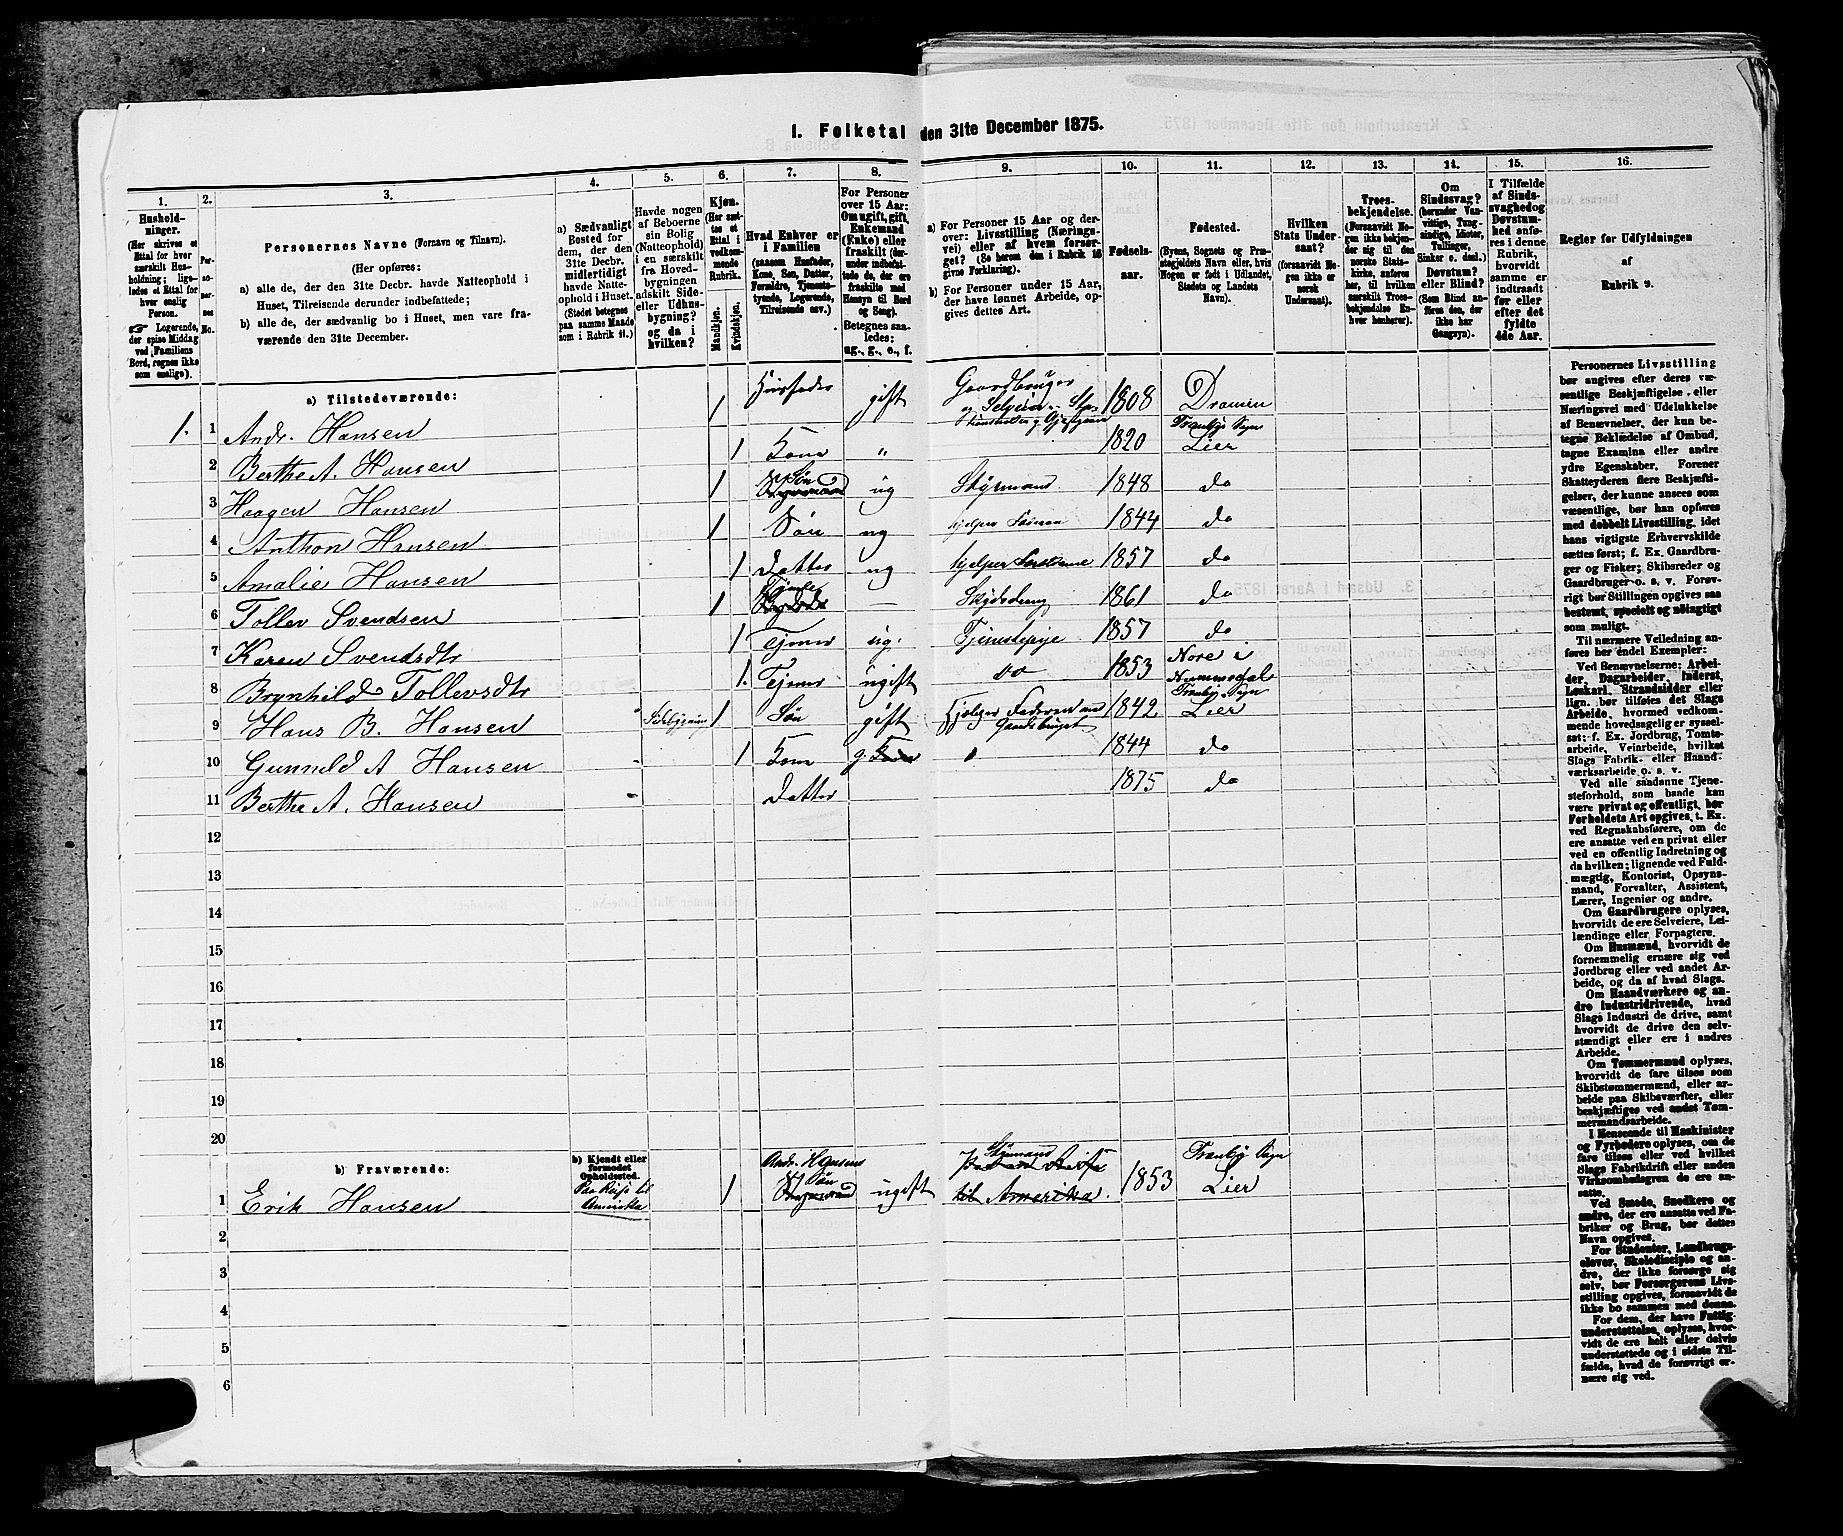 1. Folketal den 31te December 1875.
1. 2. 3. 4. 5. 6. 7. 8. 9. 10. 11. 12. 13. 14. 15. 16.
Hushold-
ninger.
(Her skrives et
Ettal for hver
særskilt Hus-
holdning; lige-
ledes et Ettal for
hver enslig
Person.
☞ Logerende,
der spise Middag
ved Familiens
Bord, regnes ikke
som enslige).
Per-
so-
ner-
nes
No.
Personernes Navne (Fornavn og Tilnavn).
(Her opføres:
a) alle de, der den 31te Decbr. havde Natteophold i
Huset, Tilreisende derunder indbefattede;
b) alle de, der sædvanlig bo i Huset, men vare fra-
værende den 31te December.
a) Sædvanligt
Bosted for
dem, der den
31te Decbr.
midlertidigt
havde Natte-
ophold i Huset.
(Stedet betegnes
paa samme Maade
som i Rubrik 11.)
Havde nogen
af Beboerne
sin Bolig
(Natteophold)
i en særskilt
fra Hoved-
bygningen
adskilt Side-
eller Udhus-
bygning?
og da i
hvilken?
Kjøn.
(Her sæt-
tes et
Ettal i
vedkom-
mende
Rubrik.
Mandkjøn.
Kvindekjøn.
Hvad Enhver er
i Familien
(saasom Husfader,
Kone, Søn, Datter,
Forældre, Tjeneste-
tyende, Logerende,
Tilreisende osv.)
For Personer
over 15 Aar:
Om ugift, gift,
Enkemand
(Enke) eller
fraskilt (der-
under indbefat-
tede de, der ere
fraskilte med
Hensyn til Bord
og Seng).
Betegnes saa-
ledes:
ug., g., e., f.
a) For Personer 15 Aar og der-
over: Livsstilling (Nærings-
vei) eller af hvem forsør-
get? (Se herom den i Rubrik 16
givne Forklaring).
b) For Personer under 15 Aar,
der have lønnet Arbeide, op-
gives dettes Art.
Fødsels-
aar.
Fødested.
(Byens, Sognets og Præ-
stegjeldets Navn eller, hvis
Nogen er født i Udlandet,
Stedets og Landets
Navn).
Hvilken
Stats Under-
saat?
(forsaavidt No-
gen ikke er
norsk
Undersaat).
Troes-
bekjendelse.
(Forsaavidt No-
gen ikke bekjen-
der sig til den
norske Stats-
kirke, anføres
her, til hvilken
særskilt Troes-
bekjendelse En-
hver henhører).
Om
Sindssvag?
(herunder Van-
vittige, Tung-
sindige, Idioter,
Tullinger,
Sinker o. desl.)
Døvstum?
eller Blind?
(Som Blind an-
føres den, der
ikke har
Gangsyn).
I Tilfælde
af Sinds-
svaghed og
Døvstum-
hed anfø-
res i denne
Rubrik,
hvorvidt
samme er
indtraadt
før eller
efter det
fyldte
4de Aar.
Regler for Udfyldningen
af
Rubrik 9.
a) Tilstedeværende:
1. 1 Andr. Hansen 1 Husfader gift Gaardbruger og Selveier 1808 Dramen
2 Berthe A. Hansen 1 Kone " 1820 Tranby Sogn Lier
3 Haagen Hansen 1 Søn ug Styrmand 1848 do
4 Anthon Hansen 1 Søn ug hjelper Faderen 1844 do
5 Amalie Hansen 1 Datter ug hjelper Forældrene 1857 do
6 Tollev Svendsen 1 — Skydsdreng 1861 do
7 Karen Svendsdtr 1 Tjener ug. Tjenestepige 1857 do
8 Brynhild Tollevsdtr 1. Tjener ugift do 1853 Nore i Nummedal
9 Hans B. Hansen Sidebygning 1 Søn gift Hjelper Faderen med Gaardsbruget 1842 Tranby Sogn Lier
10 Gunnild A Hansen 1 Kone g 1844 do
11 Berthe A. Hansen Datter 1875 do
12
13
14
15
16
17
18
19
20
b) Fraværende:
b) Kjendt eller
formodet
Opholdssted.
1 Erik Hansen Paa Reise til Amerika 1 Andr. Hansens Søn ugift Styrmand til Amerika. 1853 Tranby Sogn Lier
2
3
4
5
6
Personernes Livsstilling
bør angives efter deres væ-
sentlige Beskjæftigelse eller
Næringsvei med Udelukkelse
af Benævnelser, der kun be-
tegne Beklædelse af Ombud,
tagne Examina eller andre
ydre Egenskaber. Forener
Skatteyderen flere Beskjæfti-
gelser, der kunne ansees som
væsentlige, bør han opføres
med dobbelt Livsstilling, idet
hans vigtigste Erhvervskilde
sættes først; f. Ex. Gaardbru-
ger og Fisker; Skibsreder og
Gaardbruger o. s. v. Forøv-
rigt bør Stillingen opgives saa
bestemt, specielt og nøiagtigt
som muligt.
Til nærmere Veiledning an-
føres her endel Exempler:
Ved Benævnelserne: Arbei-
der, Dagarbeider, Inderst,
Løskarl, Strandsidder eller
lign. bør tilføies det Slags
Arbeide, hvormed vedkom-
mende hovedsagelig er syssel-
sat: f. Ex. Jordbrug, Tomte-
arbeide, Veiarbeide, hvilket
Slags Fabrik- eller Haand-
værksarbeide o. s. v.
Ved alle saadanne Tjene-
steforhold, som baade kan
være privat og offentligt, bør
Forholdets Art opgives, t. Ex.
ved Regnskabsførere, om de
ere ansatte ved en privat eller
ved en offentlig Indretning og
da hvilken; lignende ved Fuld-
mægtig, Kontorist, Opsyns-
mand, Forvalter, Assistent,
Lærer, Ingeniør og andre.
Om Gaardbrugere oplyses,
hvorvidt de ere Selveiere, Lei-
lændinge eller Forpagtere.
Om Husmænd, hvorvidt de
fornemmelig ernære sig ved
Jordbrug eller ved andet Ar-
beide, og da af hvad Slags.
Om Haandværkere og an-
dre Industridrivende, hvad
Slags Industri de drive, samt
hvorvidt de drive den selv-
stændigt eller ere i andres
Arbeide.
Om Tømmermænd oplyses,
hvorvidt de fare tilsøs som
Skibstømmermænd, eller ar-
beide paa Skibsværfter, eller
beskjæftiges ved andet Tøm-
mermandsarbeide.
I Henseende til Maskinister
og Fyrbødere oplyses, om de
fare tilsøs eller ved hvilket
Slags Fabrikdrift eller anden
Virksomhedsgren de ere an-
satte.
Ved Smede, Snedkere og
andre, der ere ansatte ved Fa-
briker og Brug, bør dettes
Navn opgives.
For Studenter, Landbrugs-
elever, Skoledisciple og an-
dre, der ikke forsørge sig
selv, bør Forsørgerens Livs-
stilling opgives, forsaavidt de
ikke bo sammen med denne.
For dem, der have Fattig-
understøttelse, oplyses, hvor-
vidt de ere helt eller delvis
understøttede og i sidste Til-
fælde, hvad de forøvrigt er-
nære sig ved.